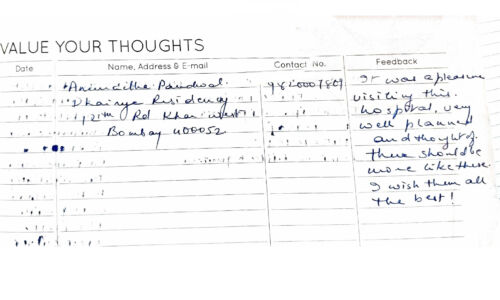 VALUE YOUR THOUGHTS
Date Name, Address & E-mail Contact No. Feedback
It was a pleasure
visiting this
hospital, very
well planned
and thought of.
there should be
more like these
I wish them all
the best!
Residency
12th Rd Khar west
Bombay 400052